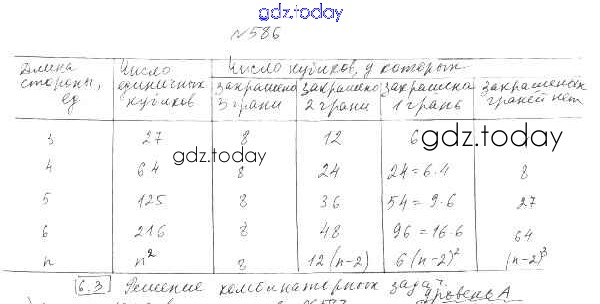 gdz.today
№586
Длина стороны, ед
Число единичных кубиков
Число кубиков, у которых
закрашено 3 грани
закрашено 2 грани
закрашена 1 грань
закрашенных граней нет
3 27 8 12 6
4 64 8 24 24=6·4 8
5 125 8 36 54=9·6 27
6 216 8 48 96=16·6 64
n n² 8 12(n-2) 6(n-2)² (n-2)³
gdz.today
gdz.today
6.3 Решение комбинаторных задач.
Уровень А
gdz.today